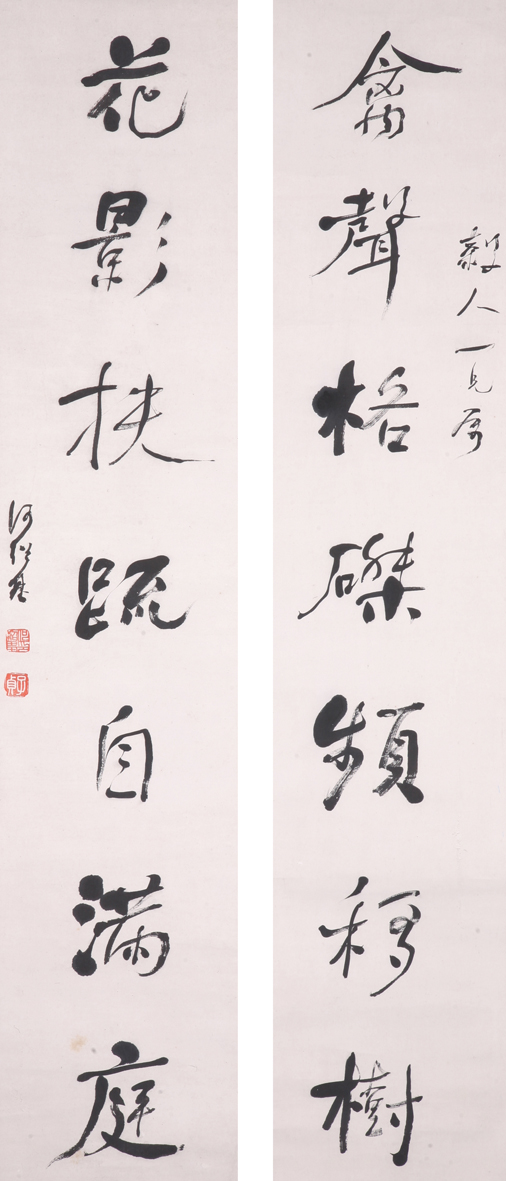 毅人一兄屬
禽聲格磔頻移樹
花影扶疏自滿庭
何紹基
子貞